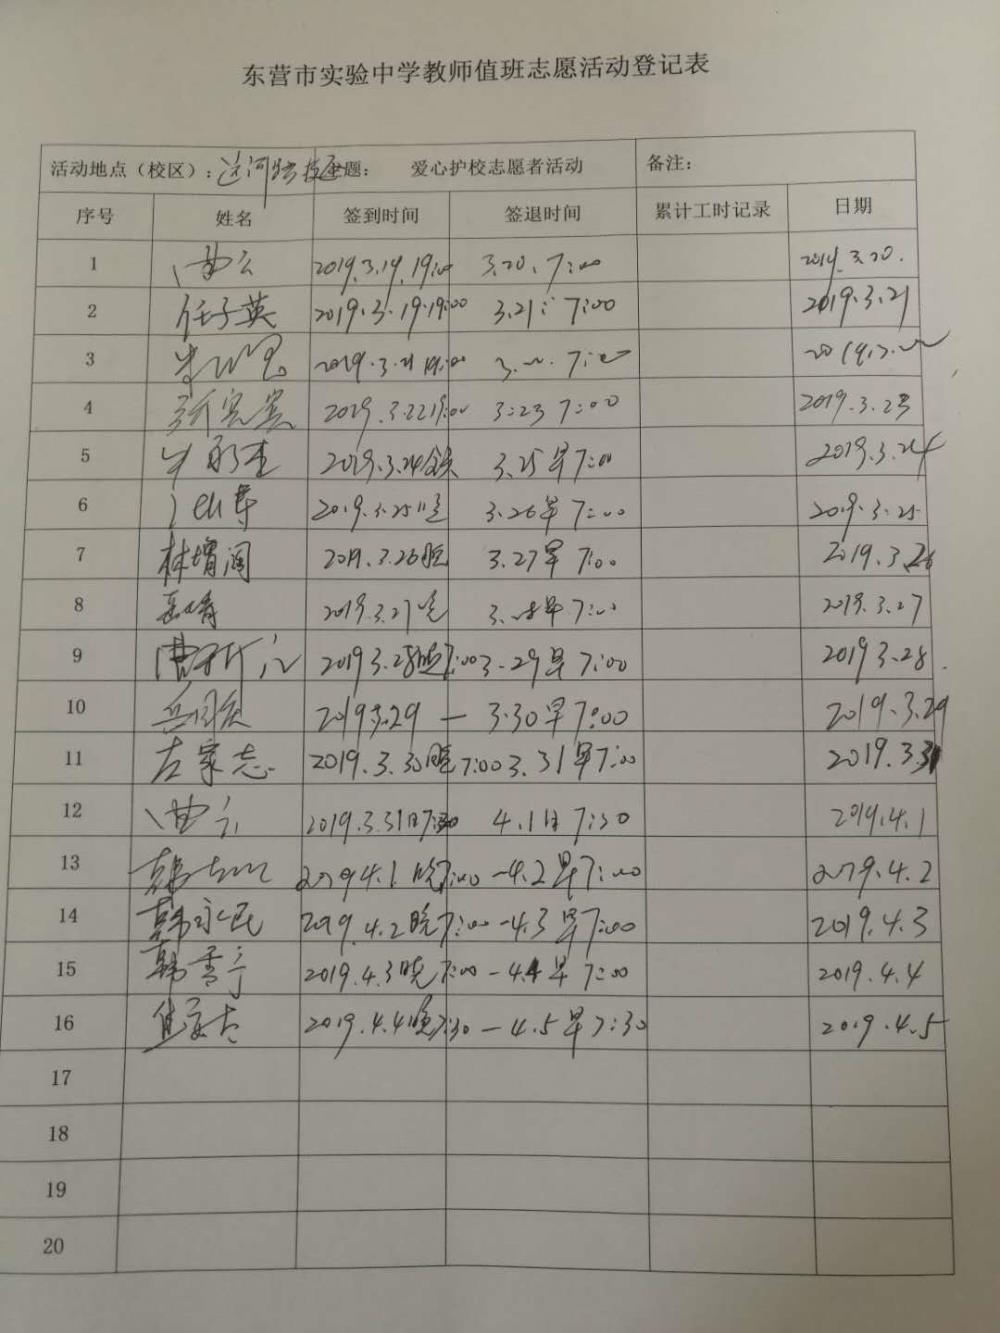 东营市实验中学教师值班志愿活动登记表
活动地点（校区）：运河路校区 主题： 爱心护校志愿者活动 备注：
序号 姓名 签到时间 签退时间 累计工时记录 日期
1 2019.3.19.19:00 3.20.7:00 2019.3.20.
2 任子英 2019.3.19.19:00 3.21: 7:00 2019.3.21
3 2019.3.21 19:00 7:00
4 2019.3.22 19:00 3:23 7:00 2019.3.23
5 2019.3.24 3.25早7:00 2019.3.24
6 2019.3.25 3.26早7:00 2019.3.25
7 林增阔 2019.3.26晚 3.27早7:00 2019.3.26
8 2019.3.27晚 早7:00 2019.3.27
9 曹 2019 3.28晚7:00 3.29早7:00 2019 3.28.
10 2019 3.29 — 3.30早7:00 2019.3.29
11 左家志 2019.3.30晚7:00 3.31早7:00 2019.3.31
12 2019.3.31日 4.1日7:30 2019.4.1
13 韩 2019 4.1晚7:00 -4.2早7:00 2019.4.2
14 韩永民 2019.4.2晚7:00 -4.3早7:00 2019.4.3
15 韩雪 2019.4.3晚7:00 - 4.4早7:00 2019.4.4
16 2019.4.4晚7:30 - 4.5早7:30 2019.4.5
17
18
19
20